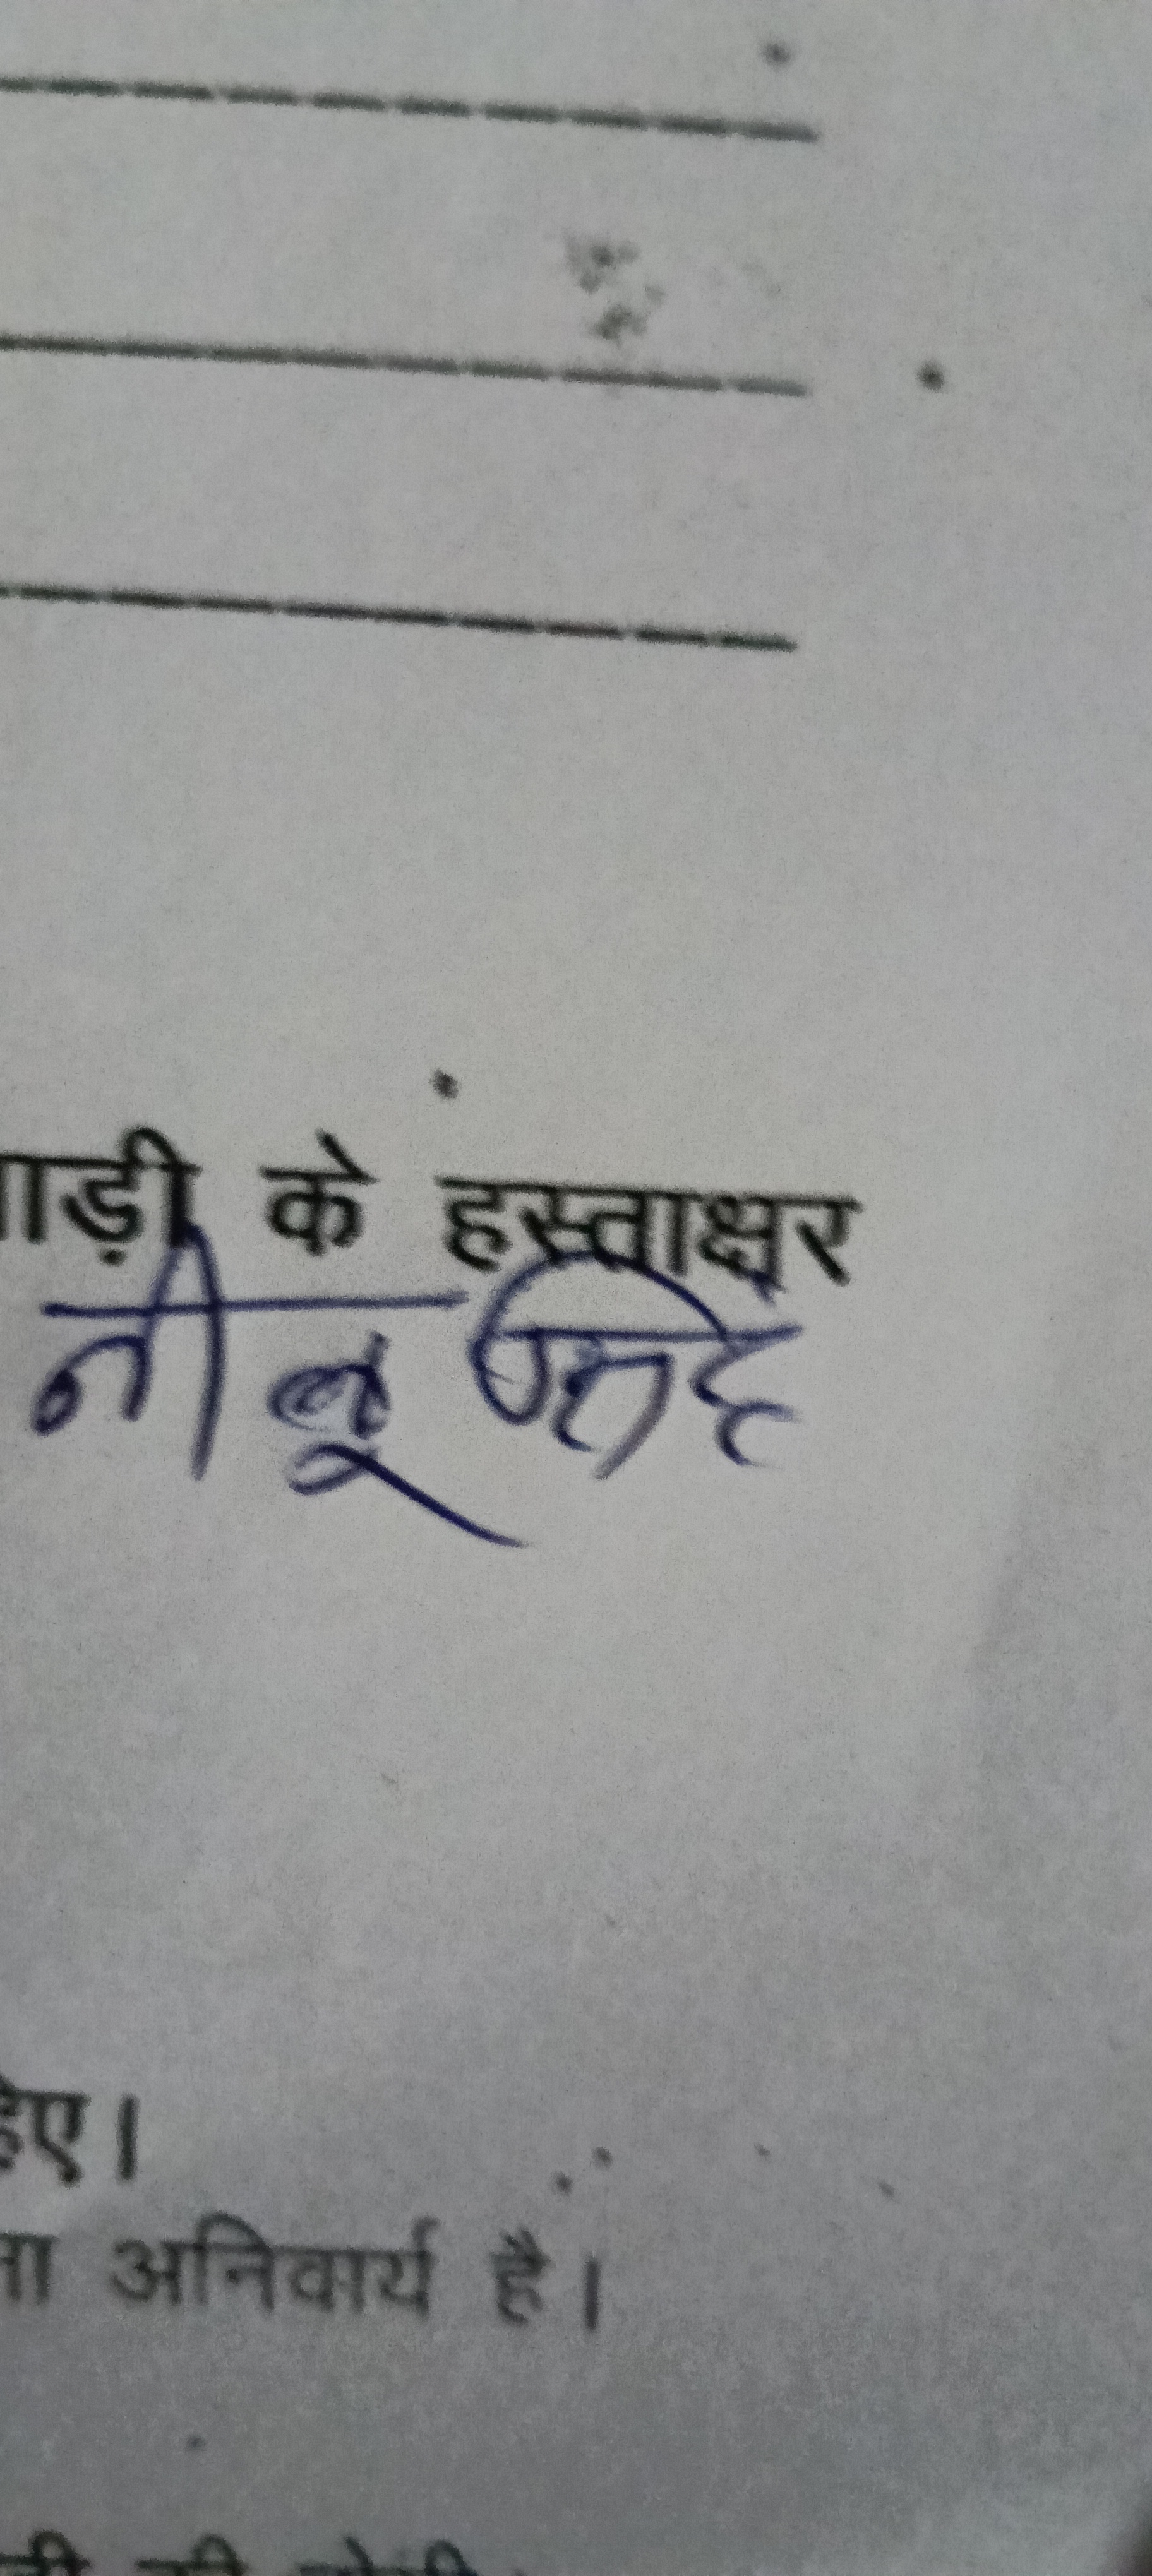 ाड़ी के हस्ताक्षर
नीलू सिंह
हिए।
ना अनिवार्य है।